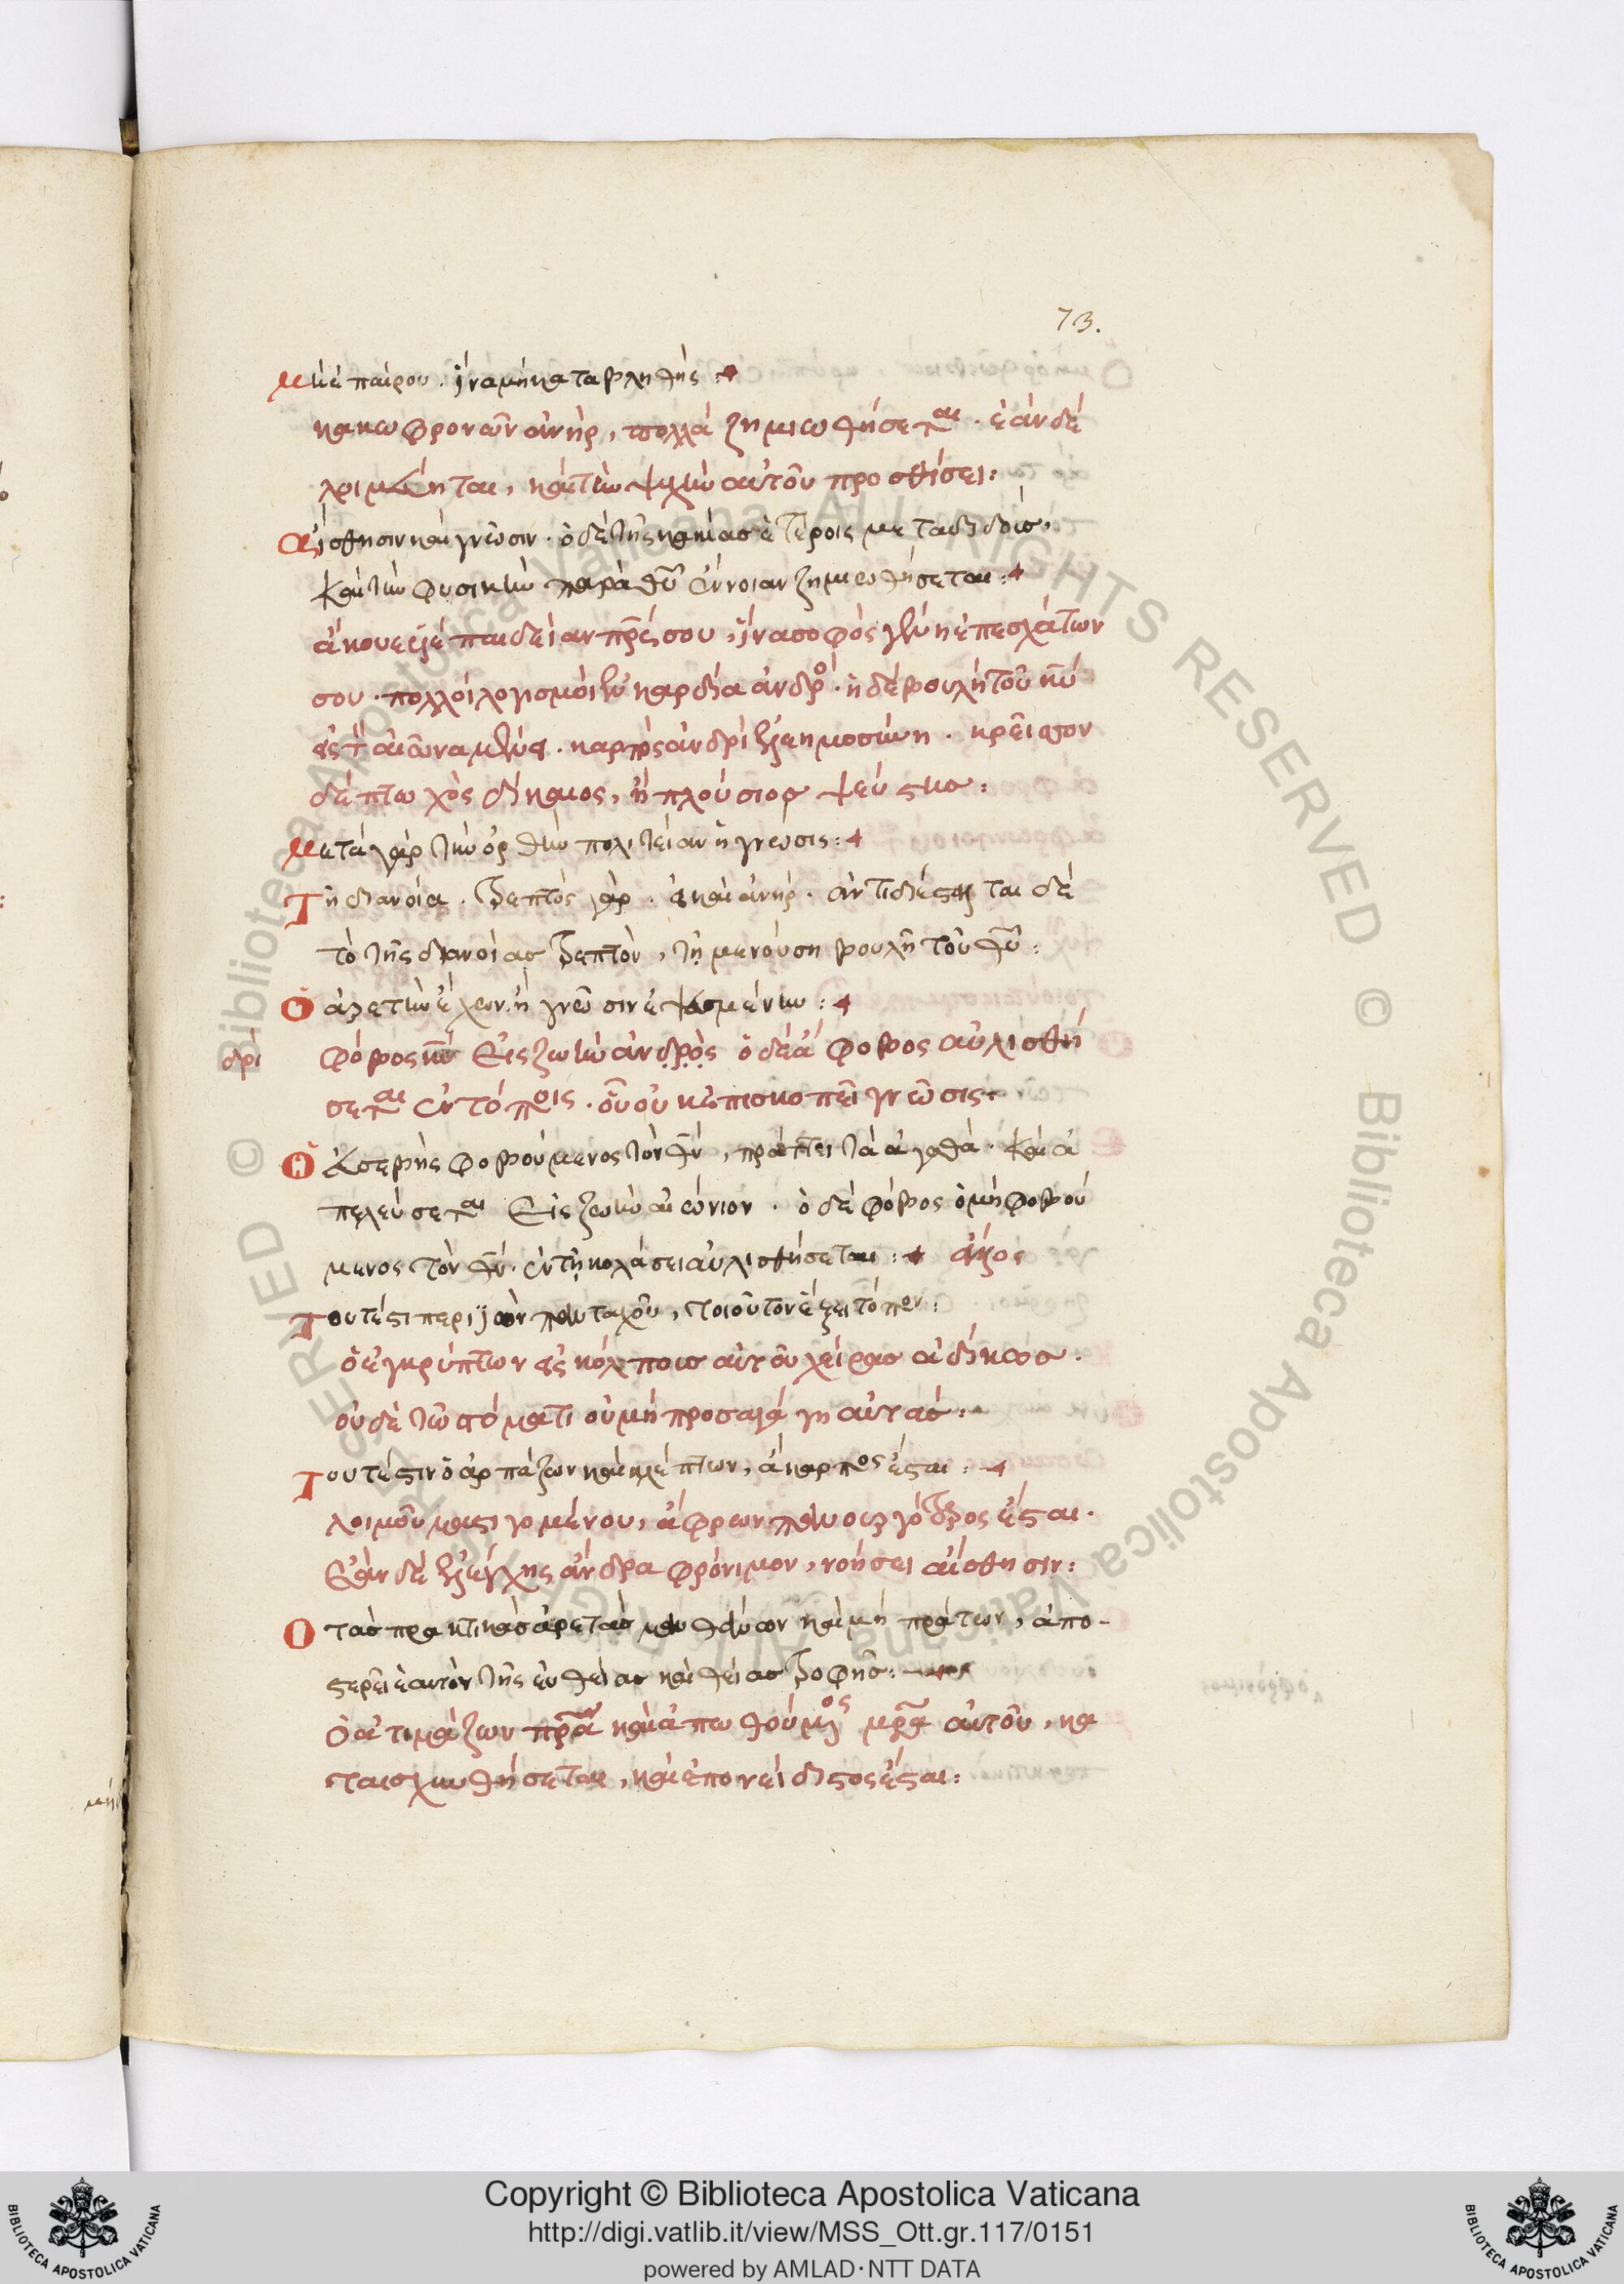 73.
Μὴ ἐπαίρου. ἵνα μὴ καταβληθῇς:
κακοφρονῶν ἀνὴρ, πολλὰ ζημιωθήσεται. ἐὰν δὲ
λοιμεύηται, καὶ τὴν ψυχὴν αὐτοῦ προσθήσει:
Αἴσθησιν καὶ γνῶσιν. ὁ δὲ τῆς κακίας ἑτέροις μεταδιδοὺς,
καὶ τὴν φυσικὴν παρὰ θῡ ἔννοιαν ζημιωθήσεται:
ἄκουε υἱὲ παιδείαν πρ̅ς σου, ἵνα σοφὸς γένῃ ἐπ ἐσχάτων
σου. πολλοὶ λογισμοὶ ἐν καρδία ἀνδρός. ἡ δὲ βουλὴ τοῦ κῡ
εἰς τὸν αἰῶνα μένει. καρπὸς ἀνδρὶ ἐλεημοσύνη. κρεῖσσον
δὲ πτωχὸς δίκαιος, ἢ πλούσιος ψεύστης:
Μετὰ γὰρ τὴν ὀρθὴν πολιτείαν ἡ γνῶσις:
Τῇ διανοία. τρεπτὸς γὰρ. καὶ ἀνήρ. ἀντιδιέσταται δὲ
τὸ τῆς διανοίας τρεπτὸν, τῇ μενούση βουλῇ τοῦ θῡ:
Ὁ ἀρετὴν ἔχων ἢ γνῶσιν ἐψευσμένην:
δρὶ
φόβος κῡ εἰς ζωὴν ἀνδρὸς ὁ δὲ ἄφοβος αὐλισθή
σεται ἐν τόποις. οὗ οὐκ ἐπισκοπεῖ γνῶσις:
Ὁ ἀσεβὴς φοβούμενος τὸν θν̅, πράττει τὰ ἀγαθὰ. καὶ ἀ
πελεύσεται εἰς ζωὴν αἰώνιον. ὁ δὲ φόβος ὁ μὴ φοβού
μενος τὸν θν̅. ἐν τῇ κολάσει αὐλισθήσεται: ἄλλος
Τουτέστι περιϊὼν πανταχοῦ, τοιοῦτον ἕξει τόπον:
ὁ ἐγκρύπτων εἰς κόλποις αὐτοῦ χεῖρας ἀδίκως.
οὐδὲ τῷ στόματι οὐ μὴ προσαγάγῃ αὐτάς:
Τουτέστιν ὁ ἁρπάζων καὶ κλέπτων, ἄκαρπος ἔσται:
λοιμοῦ μαστιγομένου, ἄφρων πανουργότερος ἔσται.
ἐὰν δὲ ἐλέγχης ἄνδρα φρόνιμον, νοήσει αἴσθησιν:
Ὁ τὰς πρακτικὰς ἀρετὰς μανθάνων καὶ μὴ πράττων, ἀπο-
στερεῖ ἑαυτὸν τῆς εὐθείας καὶ θείας τροφῆς:
Ὁ ἀτιμάζων πρ̅α καὶ ἀπωθούμενος μρ̅α αὐτοῦ, κα
ταισχυνθήσεται, καὶ ἐπονείδιστος ἔσται:
Copyright © Biblioteca Apostolica Vaticana
http://digi.vatlib.it/view/MSS_Ott.gr.117/0151
powered by AMLAD·NTT DATA